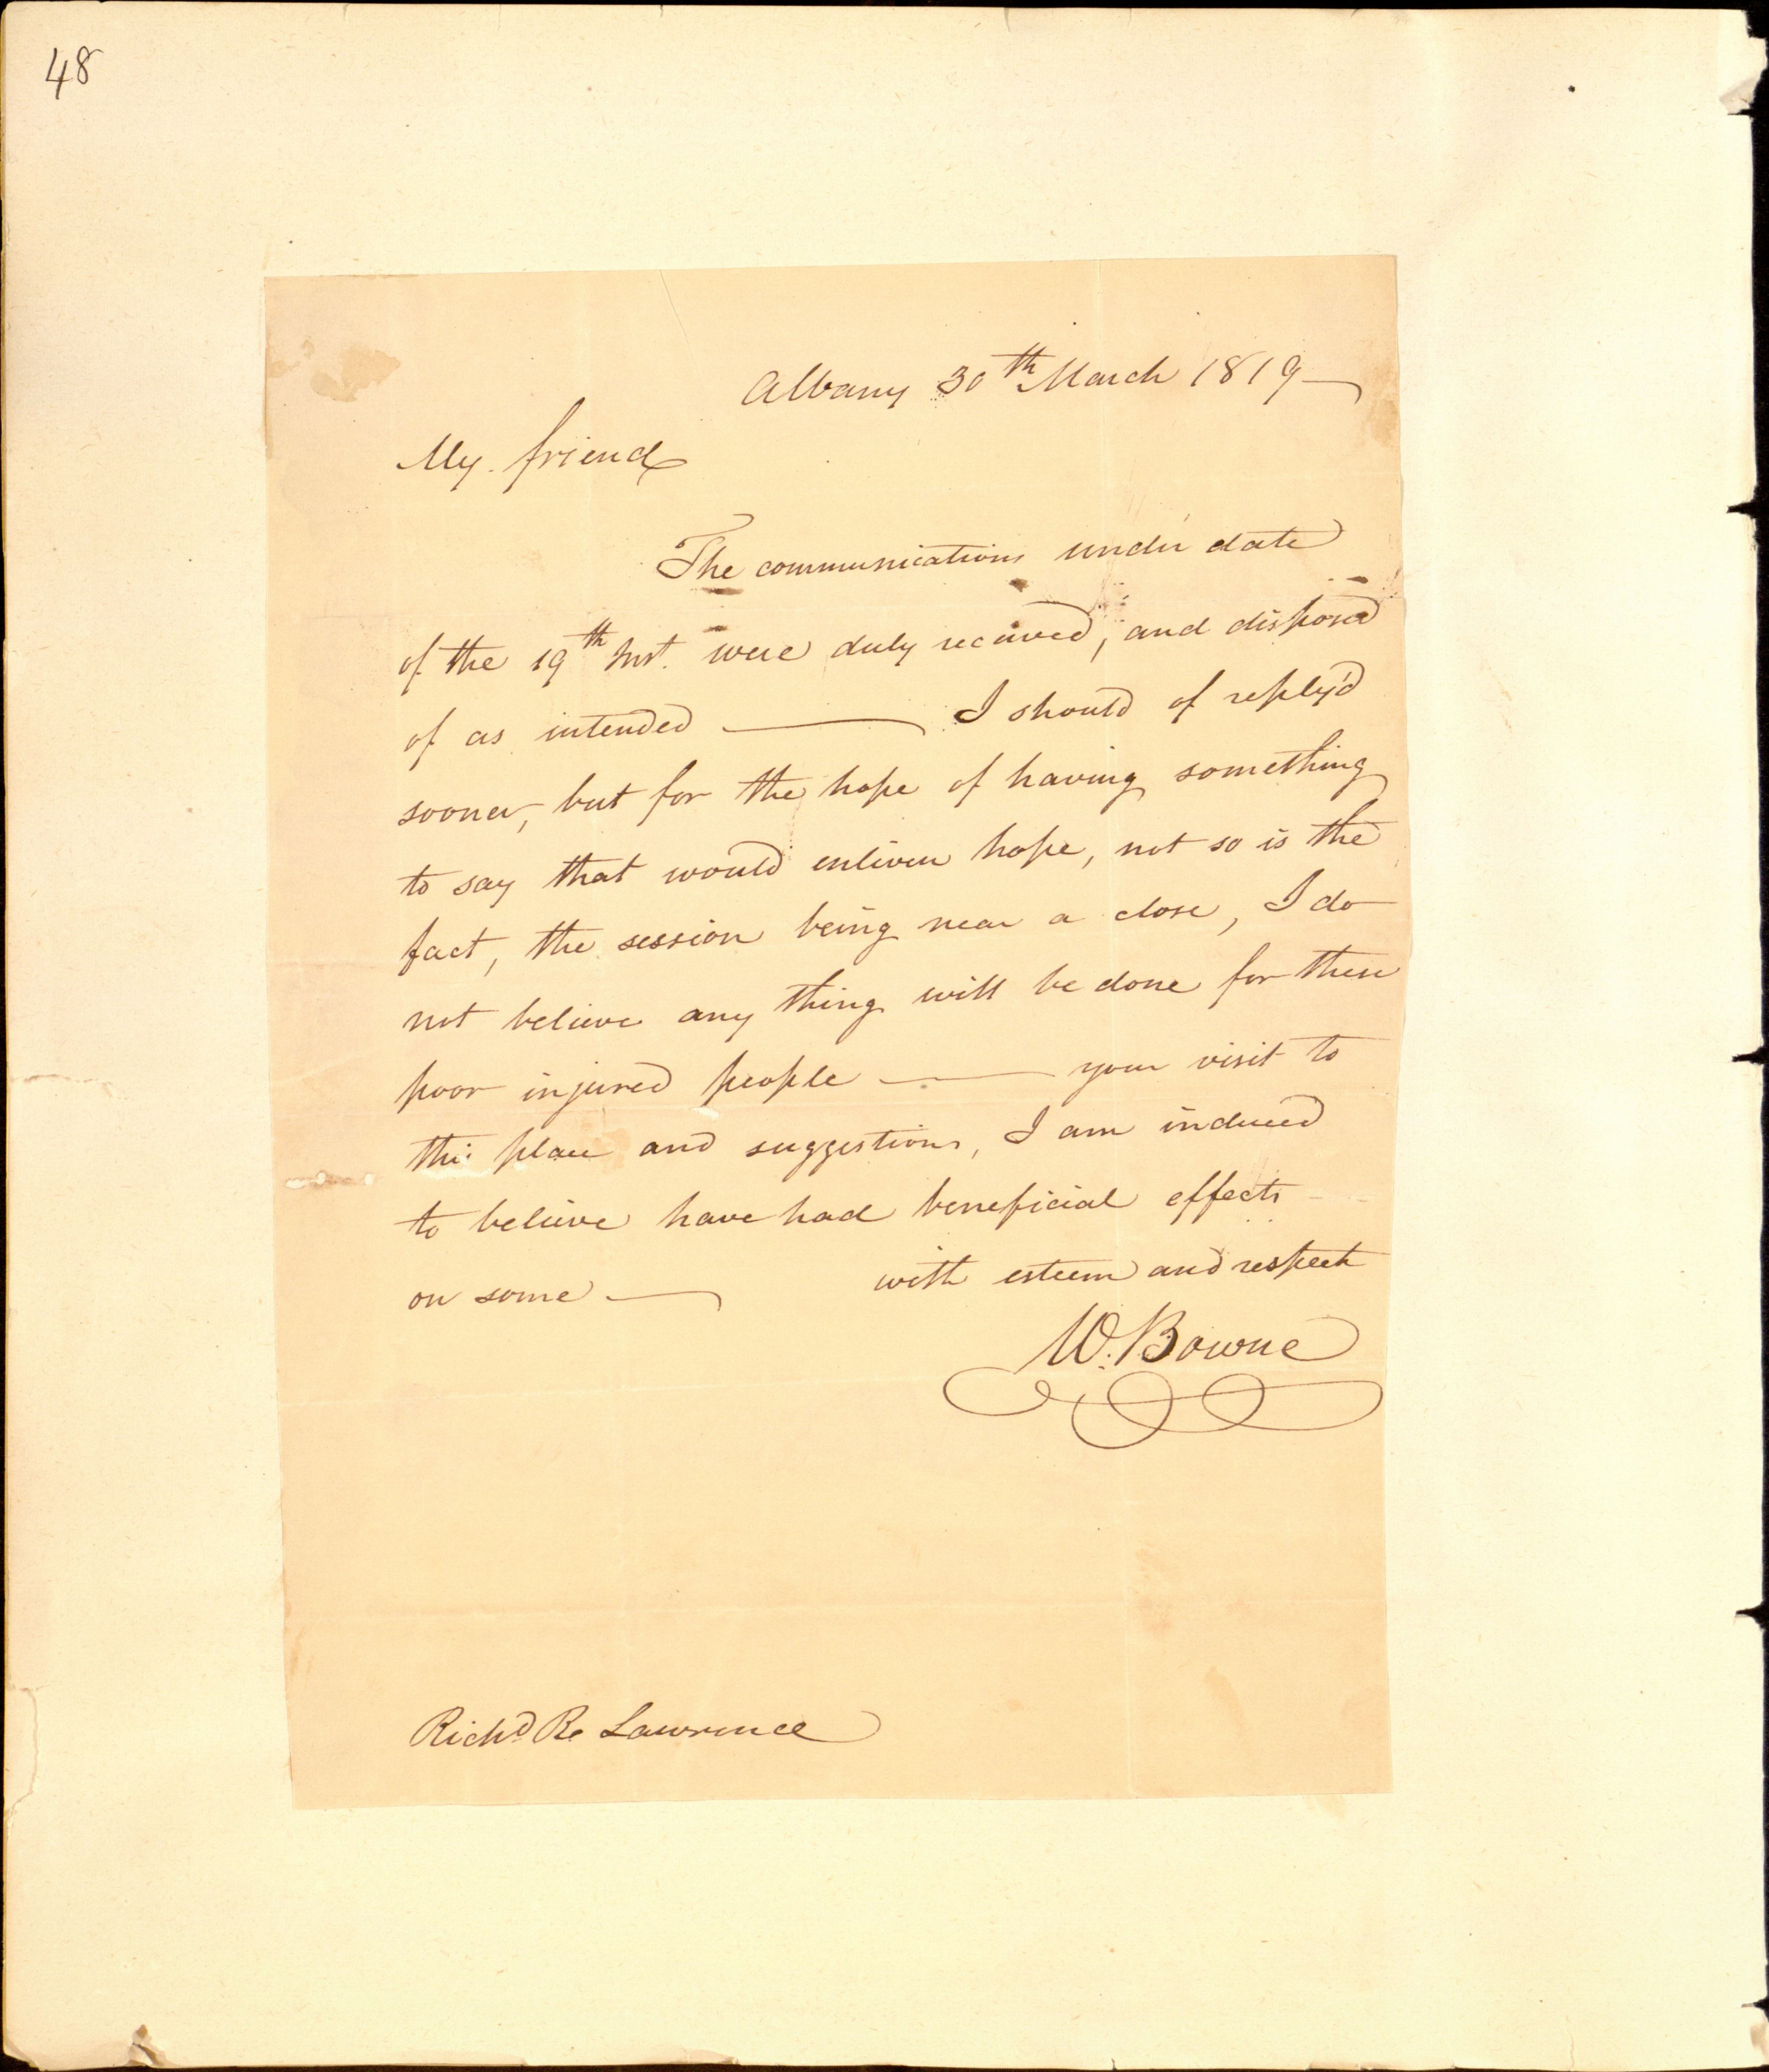 48
Albany 30th March 1819
My friend
The communications under date
of the 19th Inst. were duly received, and disposed
of as intended —— I should of reply'd
sooner, but for the hope of having something
to say that would enliven hope, not so is the
fact, the session being near a close, I do
not believe any thing will be done for these
poor injured people —— your visit to
this place and suggestions, I am induced
to believe have had beneficial effects
on some —— with esteem and respect
W. Bowne
Richd R. Lawrence